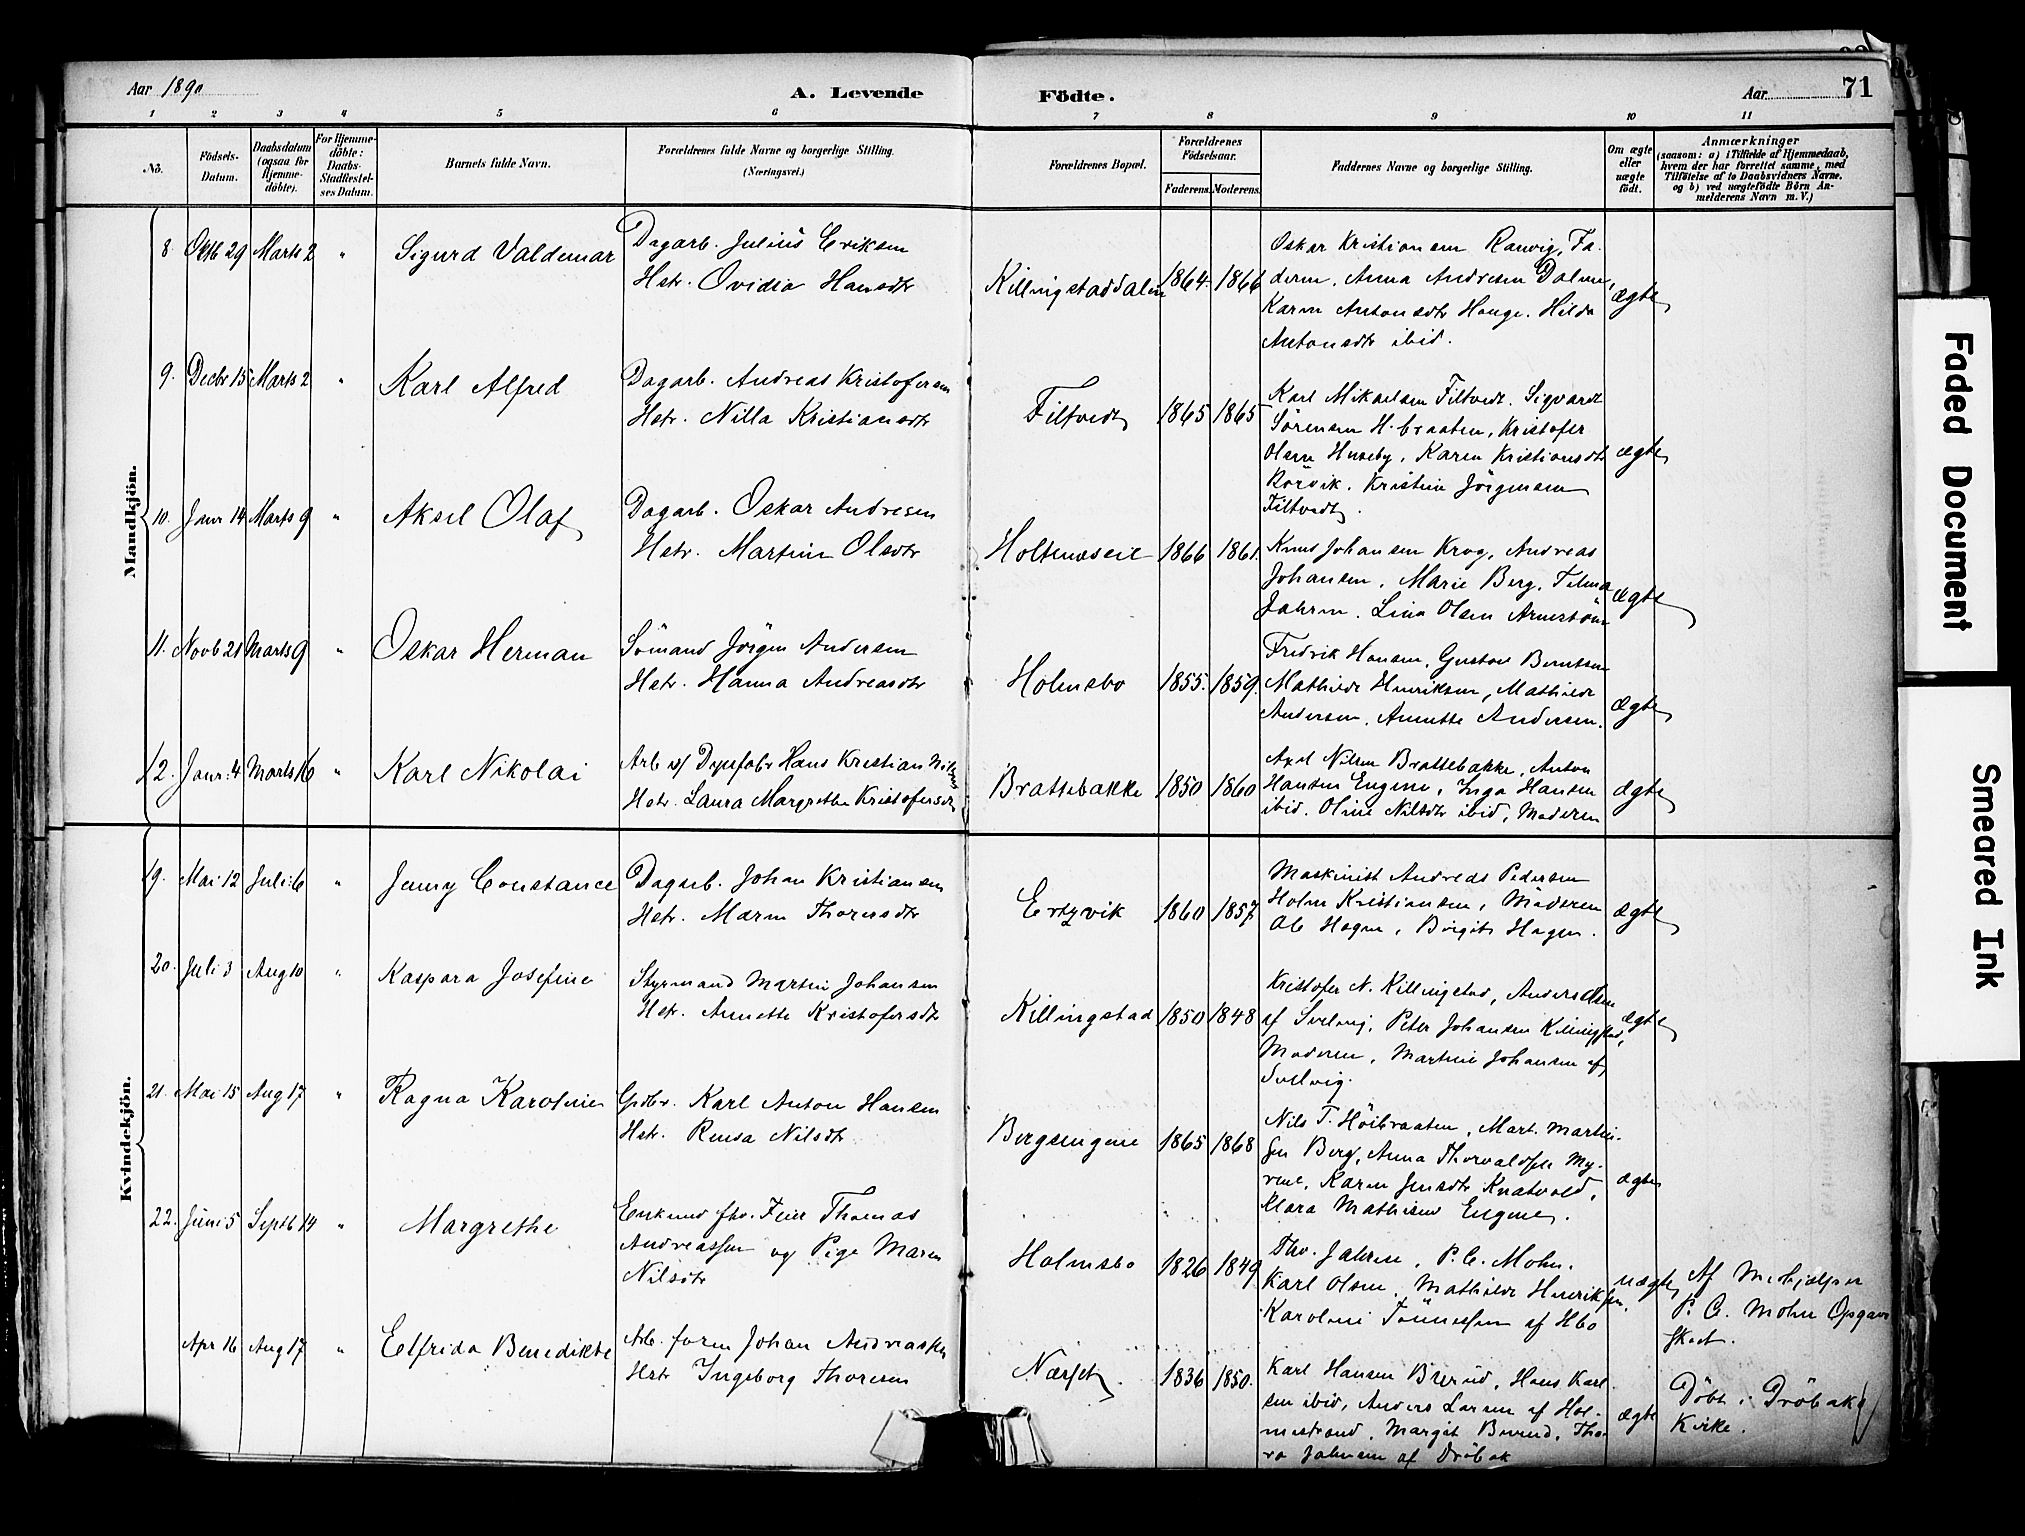 Aar 1890
A. Levende
Födte.
Aar
71
1 2 3 4 5 6 7 8 9 10 11
No.
Födsels-
Datum.
Daabsdatum
(ogsaa for
Hjemme-
döbte).
For Hjemme-
döbte:
Daabs-
Stadfæstel-
ses Datum.
Barnets fulde Navn.
Forældrenes fulde Navne og borgerlige Stilling.
(Næringsvei.)
Forældrenes Bopæl.
Forældrenes
Födselsaar.
Faderens.
Moderens.
Faddernes Navne og borgerlige Stilling.
Om ægte
eller
uægte
födt.
Anmærkninger
(saasom: a) i Tilfælde af Hjemmedaab,
hvem der har forrettet samme, med
Tilföielse af to Daabsvidners Navne,
og b) ved uægtefödte Börn An-
melderens Navn m. V.)
Mandkjön.
8. Oktb 29 Marts 2 " Sigurd Valdemar
Dagarb. Julius Eriksen
Hstr. Ovidia Hansdtr
Killingstaddalen 1864. 1866
Oskar Kristiansen Ranvig, Fa-
deren, Anna Andresen Dalen,
Karen Antonsdtr Hauge. Hilda
Antonsdtr ibid.
ægte
9. Decbr 15 Marts 2 " Karl Alfred
Dagarb. Andreas Kristofersen
Hstr. Nilla Kristiansdtr
Filtvedt 1865 1865
Karl Mikaelsen Filtvedt. Sigvardt
Sörensen H.braaten, Kristofer
Olsen Huseby, Karen Kristiansdtr
Rörvik. Kristine Jörgensen
Filtvedt.
ægte
10. Janr 14 Marts 9 " Aksel Olaf
Dagarb. Oskar Andresen
Hstr. Martine Olsdtr
Holtenæseie 1866 1861.
Knus Johansen Krog, Andreas
Johansen, Marie Berg,
Jahren. Lina Olsen
ægte
11. Novb 21 Marts 9 " Oskar Herman
Sömand Jörgen Andersen
Hstr. Hanna Andreasdtr
Holmsbo 1855. 1859.
Fredrik Hansen, Gustav Berntsen
Mathilde Henriksen, Mathilde
Andersen, Annette Andersen.
ægte
12. Janr: 4 Marts 16 " Karl Nikolai
Arb v/ Dynfabr Hans Kristian Nilsen
Hstr. Laura Margrethe Kristofersdtr
Brattebakke 1850 1860
Axel Nilsen Brattebakke, Anton
Hansen Engene, Inga Hansen
ibid. Oline Nilsdtr ibid, Moderen
ægte
Kvindekjön.
19. Mai 12 Juli: 6 " Jenny Constance
Dagarb. Johan Kristiansen
Hstr. Maren Thoresdtr
Ertzvik 1860 1857
Maskinist Andreas Pedersen
Holm Kristiansen, Moderen
Ole Hagen, Birgit Hagen.
ægte
20. Juli 3 Aug 10 " Kaspara Josefine
Styrmand Martin Johansen
Hstr. Annette Kristofersdtr
Killingstad 1850 1848
Kristofer N. Killingstad, Anders Olsen
af Svelvig, Peter Johansen Killingstad,
Moderen, Martine Johansen af
Svelvig.
ægte
21. Mai 15 Aug 17 " Ragna Karoline
Grdbr. Karl Anton Hansen
Hstr. Rensa Nilsdtr
Bergsengene 1865 1868
Nils T. Höibraaten, Mart. Martin-
sen Berg, Anna Thorvaldsen My-
rene, Karen Jensdtr Knatvold,
Klara Mathisen Engene.
ægte
22. Juni 5 Septb 14 " Margrethe
Enkmd fhv. Feier Thomas
Andreassen og Pige Maren
Nilsdtr
Holmsbo 1826 1849
Thv. Jahren, P. C. Mohn.
Karl Olsen, Mathilde Henriksen.
Karoline Tönnesen af Hbo
uægte
Af Medhjælper
P. C. Mohn Opgave
skeet.
Apr 16 Aug 17 " Elfrida Benedikte
Arb. foren Johan Andreassen
Hstr Ingeborg Thoresen
Næsset. 1836 1850.
Karl Hansen Bverud, Hans Karl-
sen ibid, Anders Larsen af Hol-
mestrand, Margit Bverud, Tho-
ra Johnsen af Dröbak
ægte
Döbt i Dröbaks
Kirke.
Faded Document
Smeared Ink